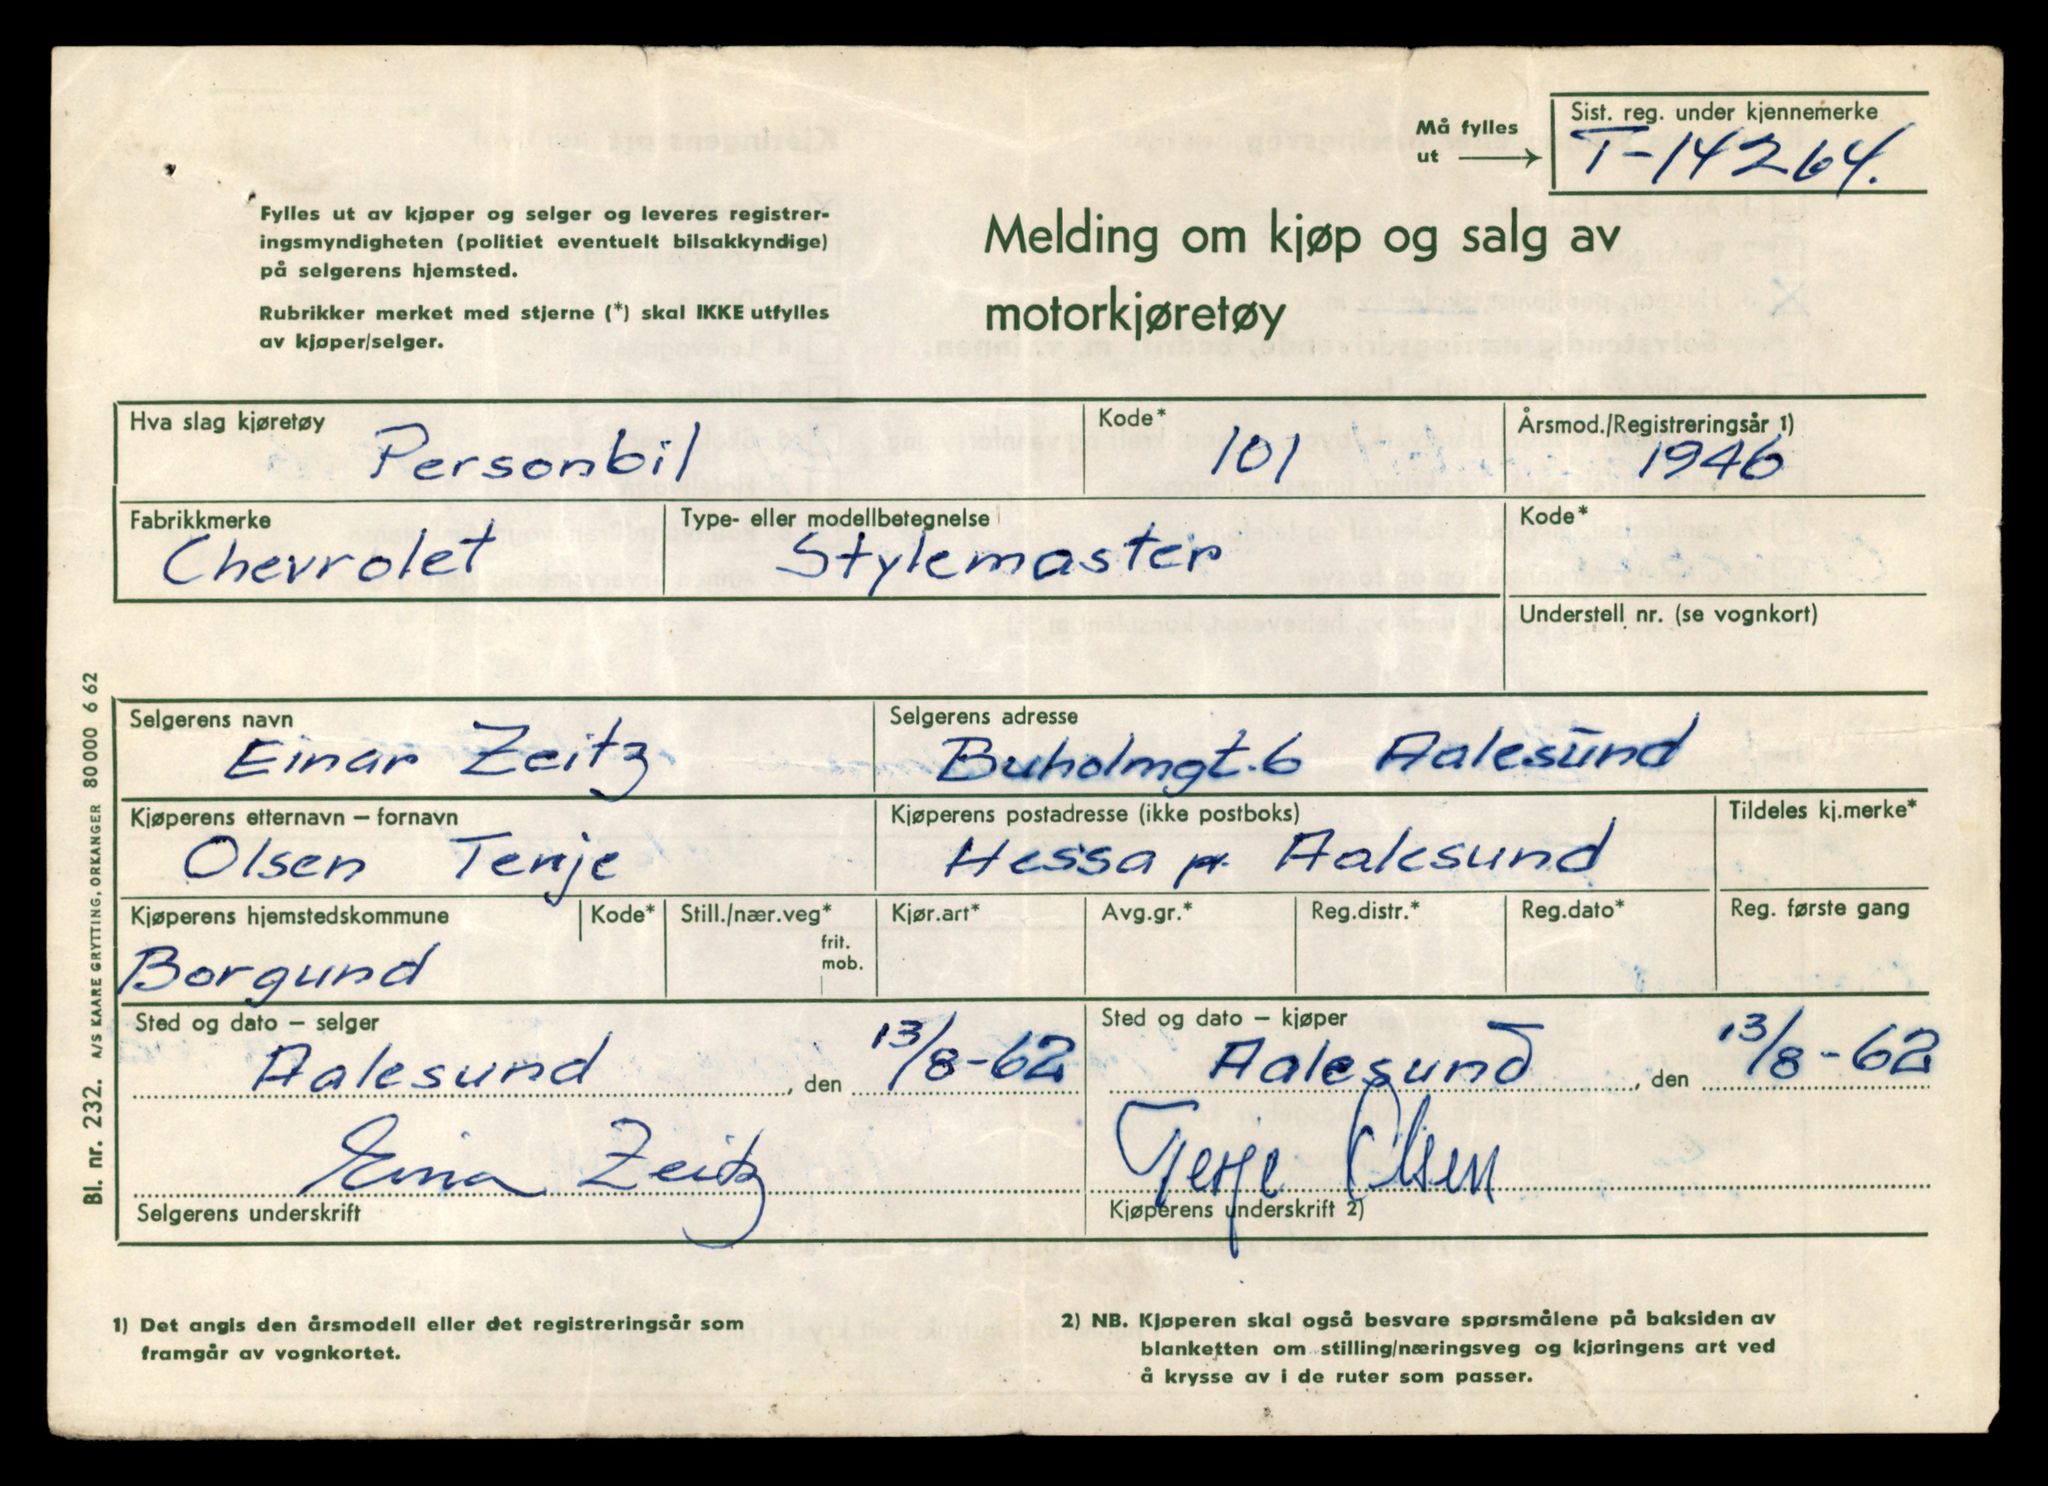 Sist. reg. under kjennemerke
Må fylles
ut
T-14264.
Fylles ut av kjøper og selger og leveres registrer-
ingsmyndigheten (politiet eventuelt bilsakkyndige)
på selgerens hjemsted.
Rubrikker merket med stjerne (*) skal IKKE utfylles
av kjøper/selger.
Melding om kjøp og salg av
motorkjøretøy
Hva slag kjøretøy
Personbil
Kode*
101
Årsmod./Registreringsår 1)
1946
Fabrikkmerke
Chevrolet
Type- eller modellbetegnelse
Stylemaster
Kode*
Understell nr. (se vognkort)
Selgerens navn
Einar Zeitz
Selgerens adresse
Buholmgt. 6 Aalesund
Kjøperens etternavn – fornavn
Olsen Terje
Kjøperens postadresse (ikke postboks)
Hessa pr. Aalesund
Tildeles kj.merke*
Kjøperens hjemstedskommune
Borgund
Kode*
Still./nær.veg*
frit.
mob.
Kjør.art*
Avg.gr.*
Reg.distr.*
Reg.dato*
Reg. første gang
Sted og dato – selger
Aalesund , den 13/8-62
Einar Zeitz
Selgerens underskrift
Sted og dato – kjøper
Aalesund , den 13/8-62
Terje Olsen
Kjøperens underskrift 2)
1) Det angis den årsmodell eller det registreringsår som
framgår av vognkortet.
2) NB. Kjøperen skal også besvare spørsmålene på baksiden av
blanketten om stilling/næringsveg og kjøringens art ved
å krysse av i de ruter som passer.
Bl. nr. 232. A/S KAARE GRYTTING, ORKANGER 80000 6 62